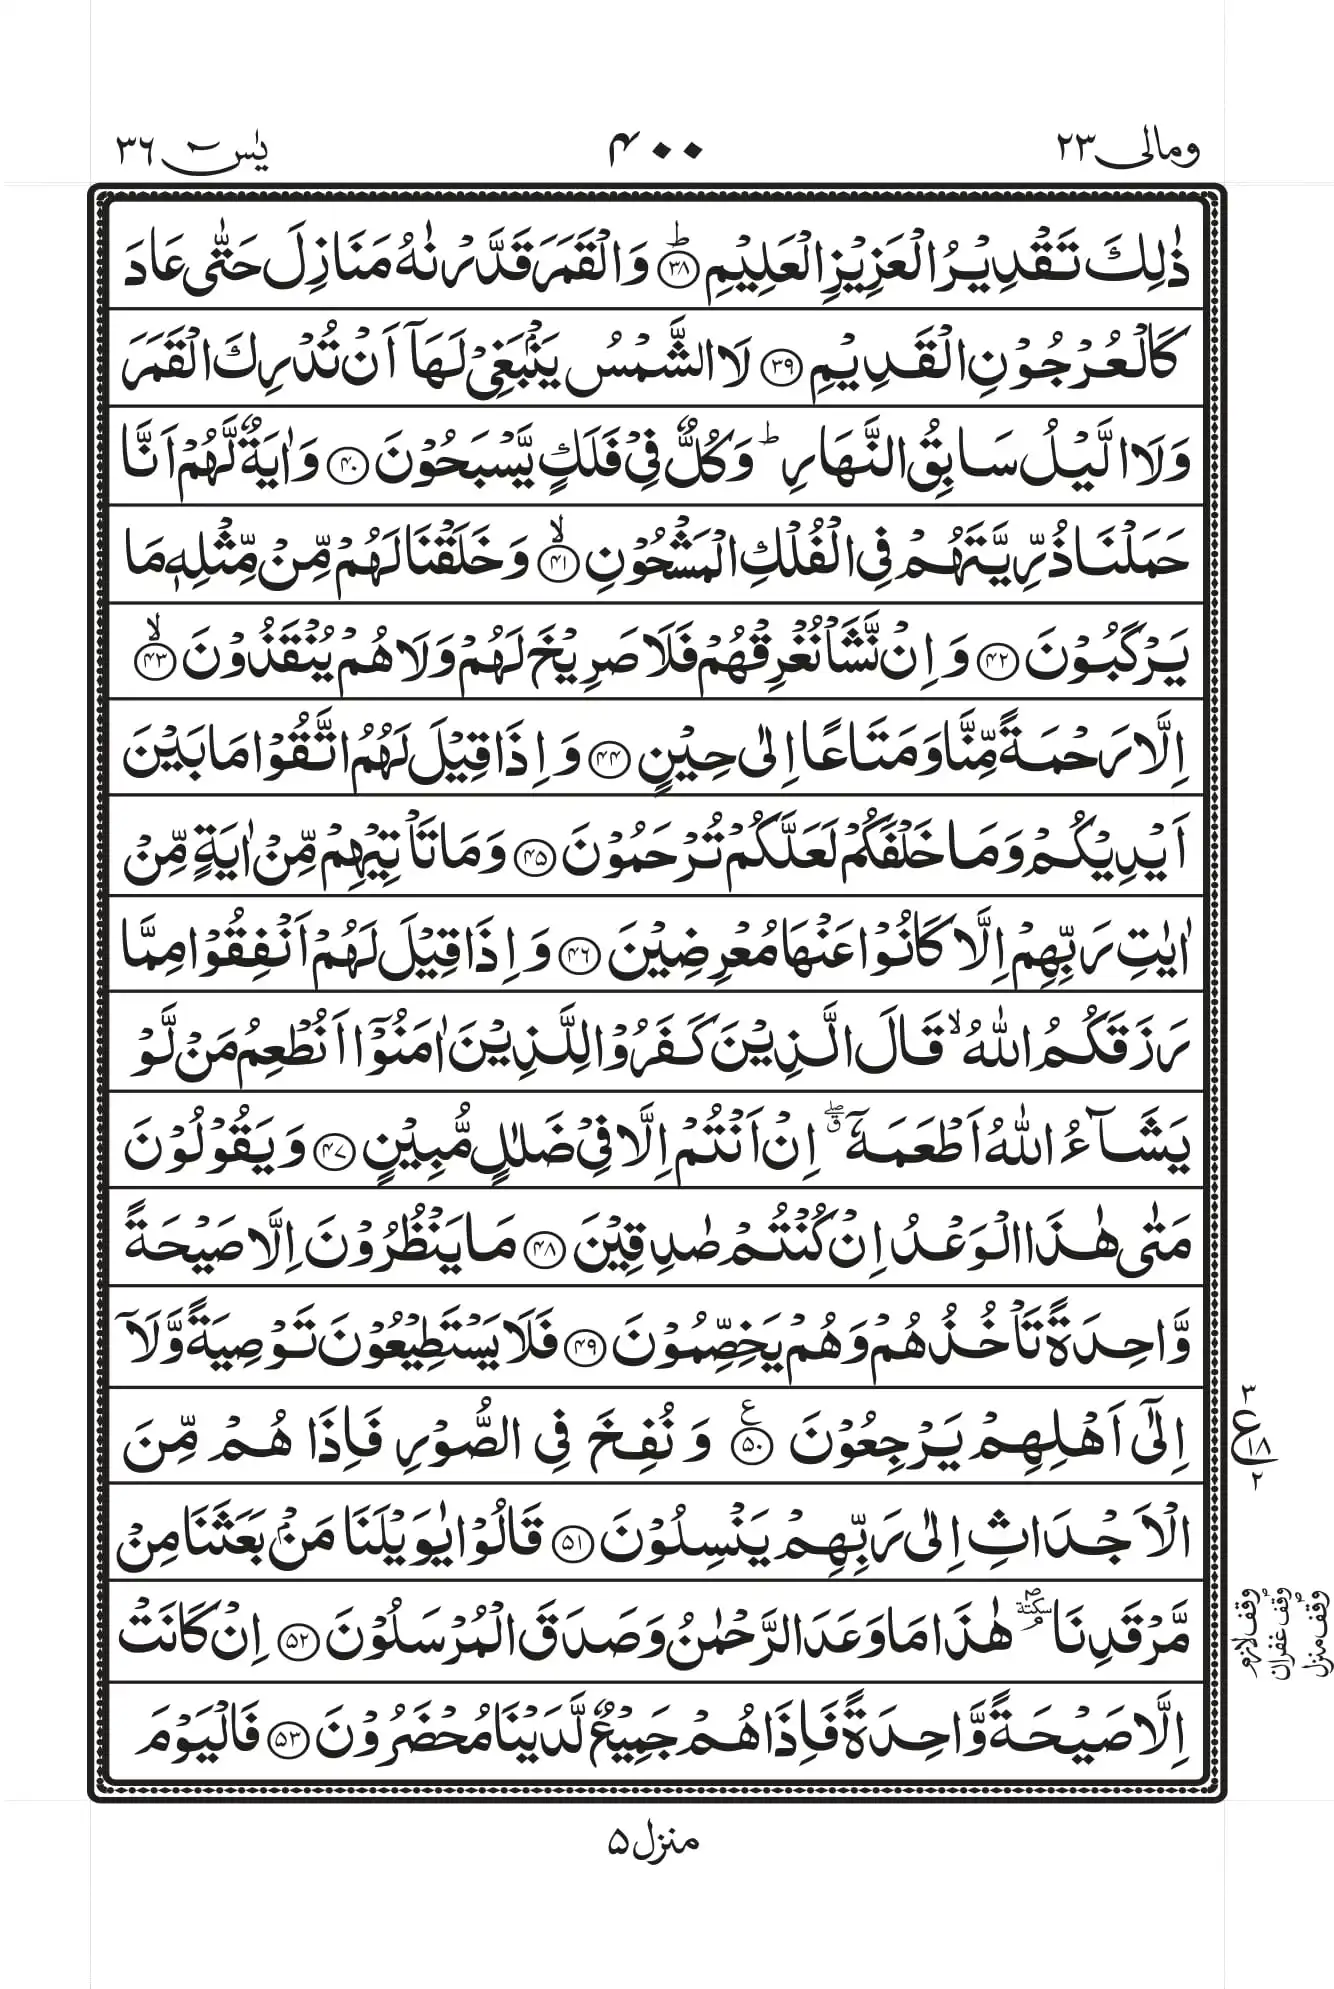 ومالی ٢٣
۴٠٠
یٰسٓ ٣٦
ذٰلِكَ تَقْدِيْرُ الْعَزِيْزِ الْعَلِيْمِ ﴿۳۸﴾ؕ وَالْقَمَرَ قَدَّرْنٰهُ مَنَازِلَ حَتّٰى عَادَ
كَالْعُرْجُوْنِ الْقَدِيْمِ ﴿۳۹﴾ لَا الشَّمْسُ يَنْۢبَغِيْ لَهَاۤ اَنْ تُدْرِكَ الْقَمَرَ
وَلَا الَّيْلُ سَابِقُ النَّهَارِ ؕ وَكُلٌّ فِيْ فَلَكٍ يَّسْبَحُوْنَ ﴿۴۰﴾ وَاٰيَةٌ لَّهُمْ اَنَّا
حَمَلْنَا ذُرِّيَّتَهُمْ فِي الْفُلْكِ الْمَشْحُوْنِ ﴿۴۱﴾ۙ وَخَلَقْنَا لَهُمْ مِّنْ مِّثْلِهٖ مَا
يَرْكَبُوْنَ ﴿۴۲﴾ وَاِنْ نَّشَاْ نُغْرِقْهُمْ فَلَا صَرِيْخَ لَهُمْ وَلَا هُمْ يُنْقَذُوْنَ ﴿۴۳﴾ۙ
اِلَّا رَحْمَةً مِّنَّا وَمَتَاعًا اِلٰى حِيْنٍ ﴿۴۴﴾ وَاِذَا قِيْلَ لَهُمُ اتَّقُوْا مَا بَيْنَ
اَيْدِيْكُمْ وَمَا خَلْفَكُمْ لَعَلَّكُمْ تُرْحَمُوْنَ ﴿۴۵﴾ وَمَا تَاْتِيْهِمْ مِّنْ اٰيَةٍ مِّنْ
اٰيٰتِ رَبِّهِمْ اِلَّا كَانُوْا عَنْهَا مُعْرِضِيْنَ ﴿۴۶﴾ وَاِذَا قِيْلَ لَهُمْ اَنْفِقُوْا مِمَّا
رَزَقَكُمُ اللّٰهُ ۙ قَالَ الَّذِيْنَ كَفَرُوْا لِلَّذِيْنَ اٰمَنُوْۤا اَنُطْعِمُ مَنْ لَّوْ
يَشَآءُ اللّٰهُ اَطْعَمَهٗۤ ۖۗ اِنْ اَنْتُمْ اِلَّا فِيْ ضَلٰلٍ مُّبِيْنٍ ﴿۴۷﴾ وَيَقُوْلُوْنَ
مَتٰى هٰذَا الْوَعْدُ اِنْ كُنْتُمْ صٰدِقِيْنَ ﴿۴۸﴾ مَا يَنْظُرُوْنَ اِلَّا صَيْحَةً
وَّاحِدَةً تَاْخُذُهُمْ وَهُمْ يَخِصِّمُوْنَ ﴿۴۹﴾ فَلَا يَسْتَطِيْعُوْنَ تَوْصِيَةً وَّلَاۤ
اِلٰۤى اَهْلِهِمْ يَرْجِعُوْنَ ﴿۵۰﴾ ع وَنُفِخَ فِي الصُّوْرِ فَاِذَا هُمْ مِّنَ
٣ ع ١٨ ٢
الْاَجْدَاثِ اِلٰى رَبِّهِمْ يَنْسِلُوْنَ ﴿۵۱﴾ قَالُوْا يٰوَيْلَنَا مَنْۢ بَعَثَنَا مِنْ
مَّرْقَدِنَا ۘ سكتة هٰذَا مَا وَعَدَ الرَّحْمٰنُ وَصَدَقَ الْمُرْسَلُوْنَ ﴿۵۲﴾ اِنْ كَانَتْ
وقف لازم
وقف غفران
وقف منزل
اِلَّا صَيْحَةً وَّاحِدَةً فَاِذَا هُمْ جَمِيْعٌ لَّدَيْنَا مُحْضَرُوْنَ ﴿۵۳﴾ فَالْيَوْمَ
منزل ۵